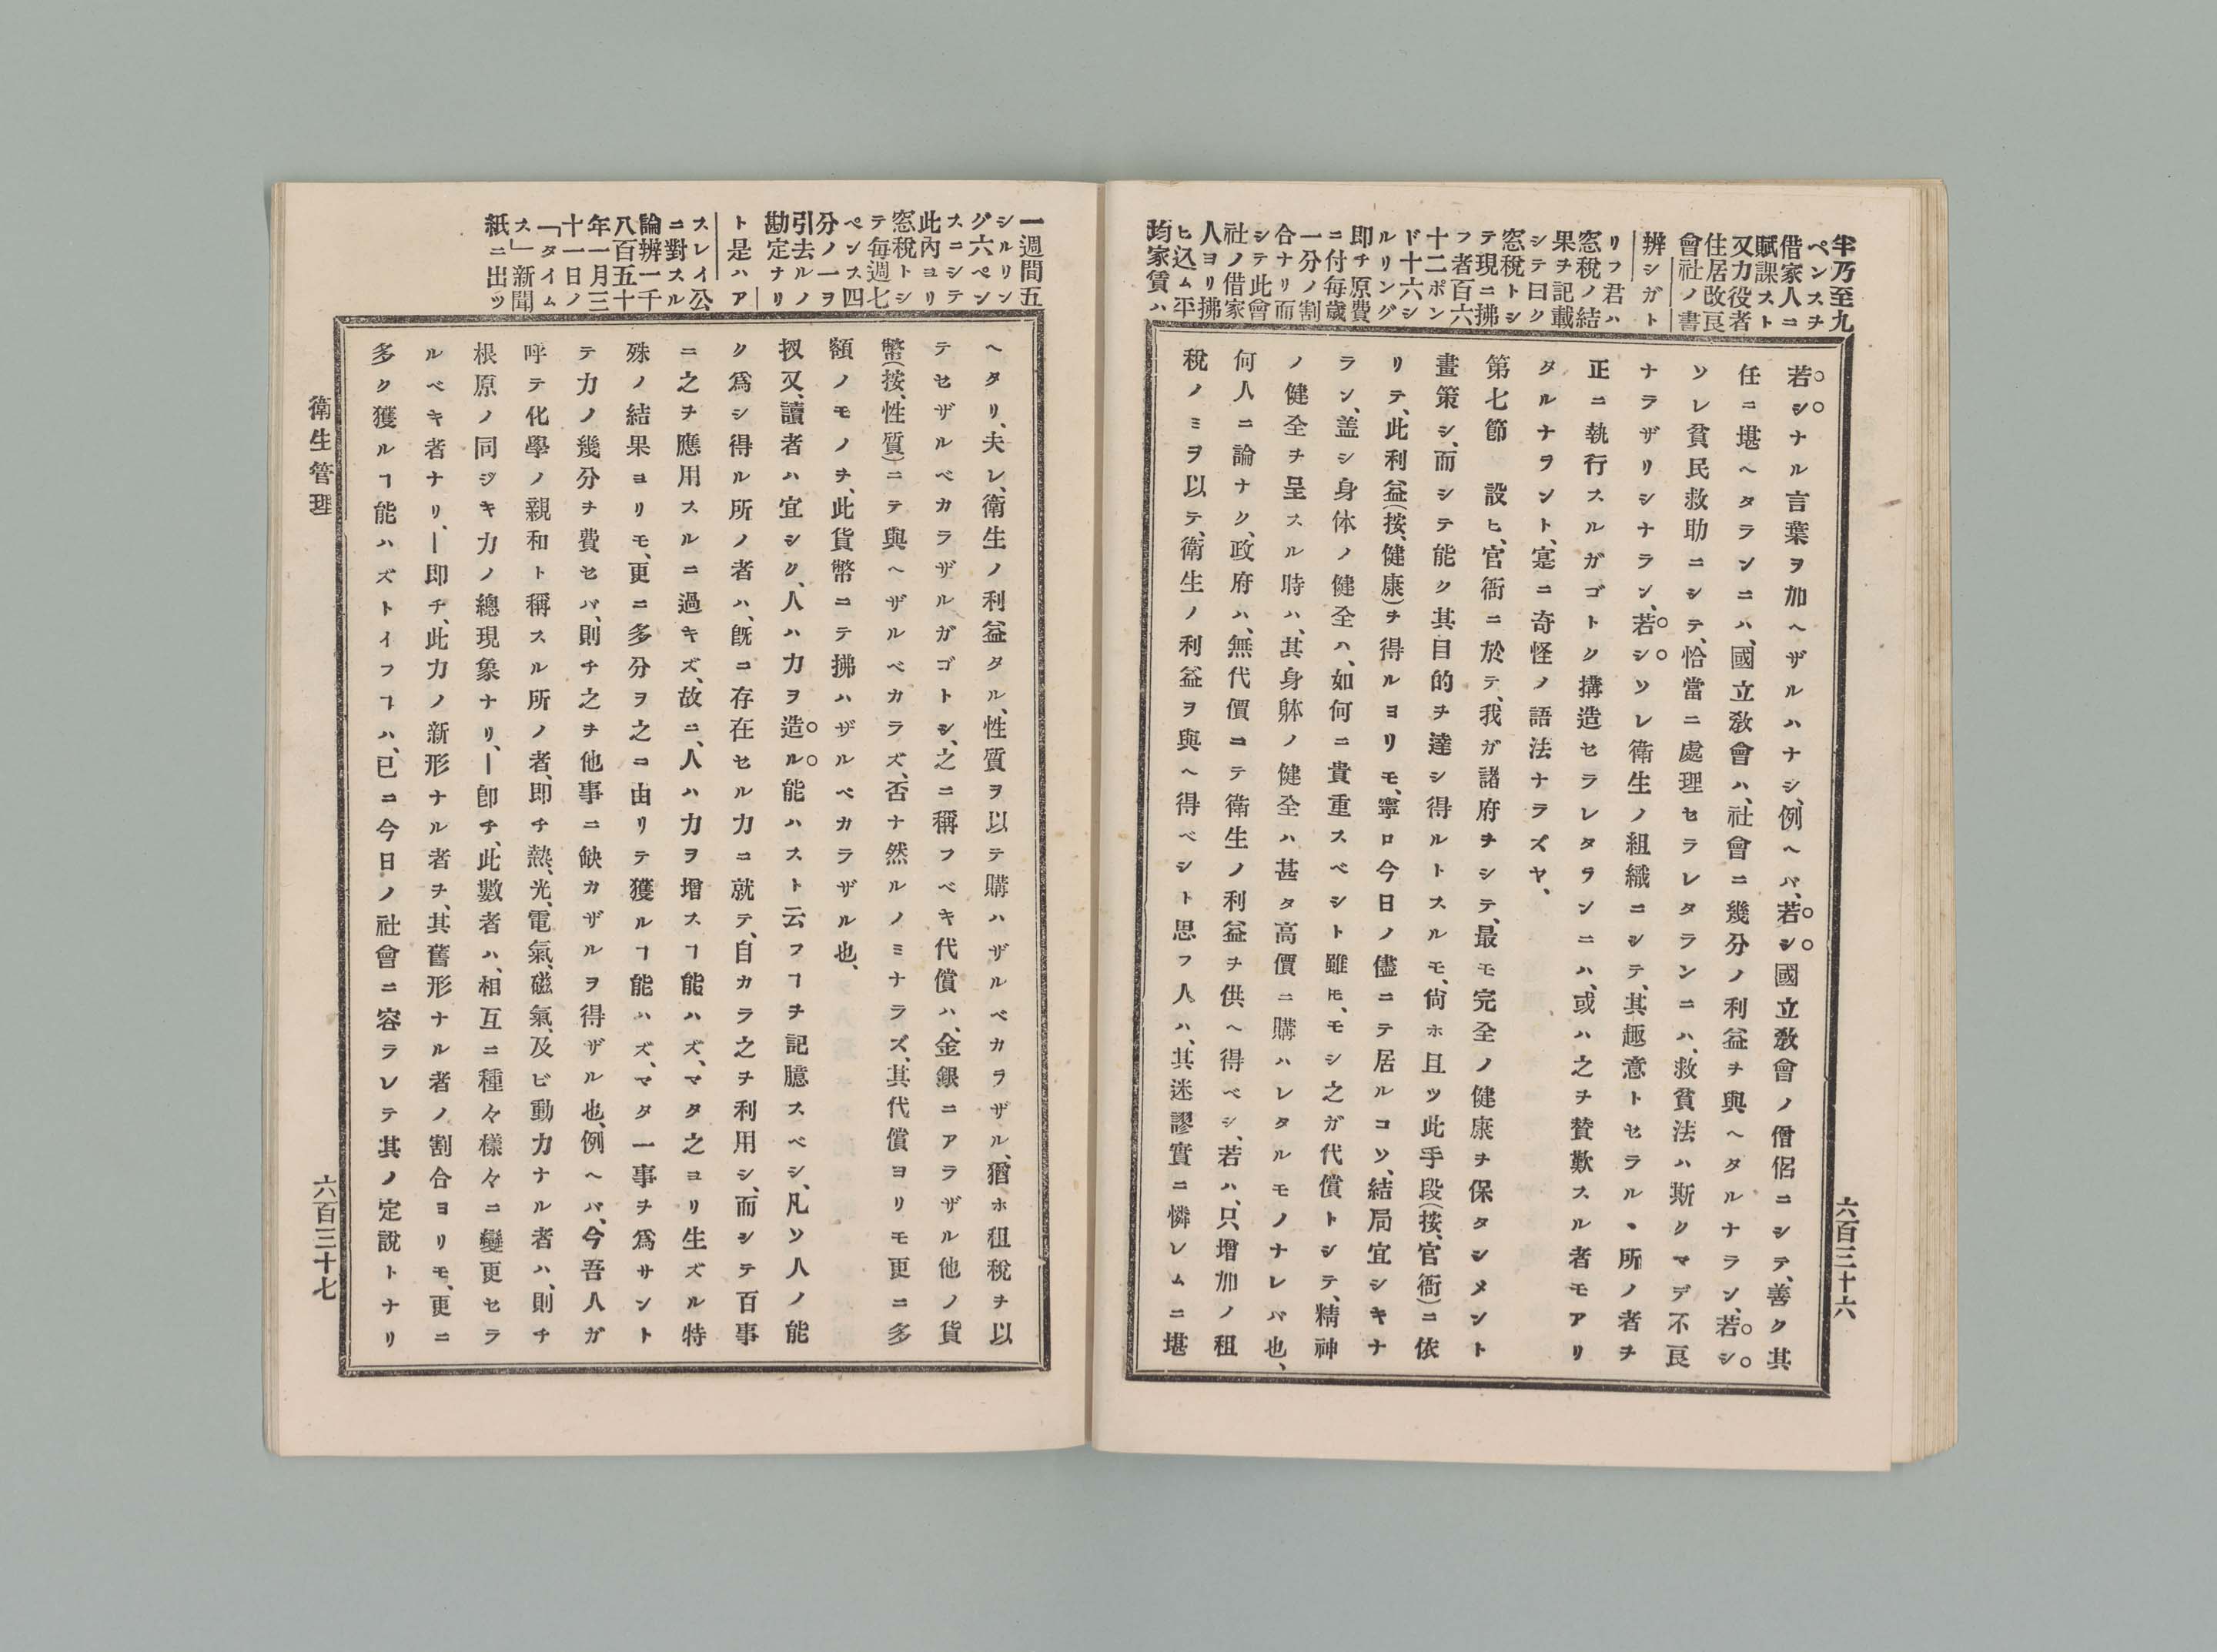 半乃至九
ペンスヲ
借家人ニ
賦課スト
又力役者
住居改良
會社ノ書
辨シガト
リフ君ハ
窓税ノ結
果ヲ記載
シテ曰ク
窓税トシ
テ現ニ拂
フ者百六
十二ポン
ド十六シ
ルリング
即チ原費
ニ付毎歳
一分ノ割
合ナリ而
シテ此會
社ノ借家
人ヨリ拂
ヒ込ム平
均家賃ハ
若シナル言葉ヲ加ヘザルハナシ、例ヘバ、若シ國立教會ノ僧侶ニシテ、善ク其
任ニ堪ヘタランニハ、國立教會ハ、社會ニ幾分ノ利益ヲ與ヘタルナラン、若シ
ソレ貧民救助ニシテ、恰當ニ處理セラレタランニハ、救貧法ハ斯クマデ不良
ナラザリシナラン、若シソレ衛生ノ組織ニシテ、其趣意トセラルヽ所ノ者ヲ
正ニ執行スルガゴトク搆造セラレタランニハ、或ハ之ヲ賛歎スル者モアリ
タルナヲント、寔ニ奇怪ノ語法ナラズヤ、
第七節 設ヒ、官衙ニ於テ、我ガ諸府ヲシテ、最モ完全ノ健康ヲ保タシメント
畫策シ、而シテ能ク其目的ヲ達シ得ルトスルモ、尙ホ且ツ此手段(按、官衙)ニ依
リテ、此利益(按、健康)ヲ得ルヨリモ、寧ロ今日ノ儘ニテ居ルコソ、結局宜シキナ
ラン、盖シ身体ノ健全ハ、如何ニ貴重スベシト雖𪜈、モシ之ガ代償トシテ、精神
ノ健全ヲ呈スル時ハ、其身躰ノ健全ハ甚タ高價ニ購ハレタルモノナレバ也、
何人ニ論ナク、政府ハ、無代價ニテ衛生ノ利益ヲ供ヘ得ベシ、若ハ、只增加ノ租
稅ノミヲ以テ、衛生ノ利益ヲ與ヘ得ベシト思フ人ハ、其迷謬實ニ憐レムニ堪
六百三十六
一週間五
シルリン
グ六ペン
スニシテ
此內ヨリ
窓税トシ
テ毎週七
ペンス四
分ノ一ヲ
引去ルノ
勘定ナリ
ト是ハア
スレイ公
ニ對スル
論辨一千
八百五十
年一月三
十一日ノ
「タイム
ス」新聞
紙ニ出ツ
ヘタリ、夫レ、衛生ノ利益タル、性質ヲ以テ購ハザルベカラザル、猶ホ租稅ヲ以
テセザルベカラザルガゴトシ、之ニ稱フベキ代償ハ、金銀ニアラザル他ノ貨
幣(按、性質)ニテ與ヘザルベカラズ、否ナ然ルノミナラズ、其代償ヨリモ更ニ多
額ノモノヲ、此貨幣ニテ拂ハザルベカラザル也、
扨又、讀者ハ宜シク、人ハ力ヲ造ル能ハスト云フヿヲ記臆スベシ、凡ソ人ノ能
ク爲シ得ル所ノ者ハ、旣ニ存在セル力ニ就テ、自カラ之ヲ利用シ、而シテ百事
ニ之ヲ應用スルニ過キズ、故ニ、人ハ力ヲ增スヿ能ハズ、マタ之ヨリ生ズル特
殊ノ結果ヨリモ、更ニ多分ヲ之ニ由リテ獲ルヿ能ハズ、マタ一事ヲ爲サント
テ力ノ幾分ヲ費セバ、則チ之ヲ他事ニ缺カザルヲ得ザル也、例ヘバ、今吾人ガ
呼テ化學ノ親和ト稱スル所ノ者、即チ熱、光、電氣、磁氣、及ビ動力ナル者ハ、則チ
根原ノ同ジキ力ノ總現象ナリ、ー即チ、此數者ハ、相互ニ種々樣々ニ變更セラ
ルベキ者ナリ、ー即チ、此力ノ新形ナル者ヲ、其舊形ナル者ノ割合ヨリモ、更ニ
多ク獲ルヿ能ハズトイフヿハ、已ニ今日ノ社會ニ容ラレテ其ノ定說トナリ
衛生管理
六百三十七